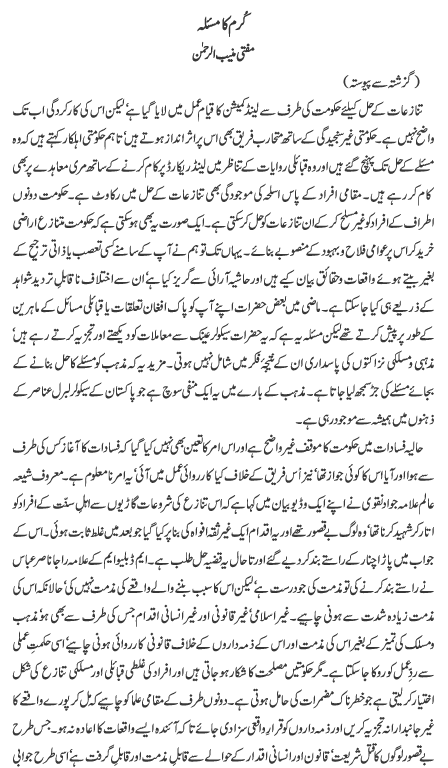 کُرم کا مسئلہ
مفتی منیب الرحمٰن
(گزشتہ سے پیوستہ)
تنازعات کے حل کیلئے حکومت کی طرف سے لینڈ کمیشن کا قیام عمل میں لایا گیا ہے‘ لیکن اس کی کارکردگی اب تک
واضح نہیں ہے۔ حکومتی غیر سنجیدگی کے ساتھ متحارب فریق بھی اس پر اثر انداز ہوتے ہیں‘ تاہم حکومتی اہلکار کہتے ہیں کہ وہ
مسئلے کے حل تک پہنچ گئے ہیں اور وہ قبائلی روایات کے تناظر میں لینڈ ریکارڈ پر کام کرنے کے ساتھ مری معاہدے پر بھی
کام کر رہے ہیں۔ مقامی افراد کے پاس اسلحے کی موجودگی بھی تنازعات کے حل میں رکاوٹ ہے۔ حکومت دونوں
اطراف کے افراد کو غیر مسلح کر کے ان تنازعات کو حل کر سکتی ہے۔ ایک صورت یہ بھی ہو سکتی ہے کہ حکومت متنازع اراضی
خرید کر اس پر عوامی فلاح و بہبود کے منصوبے بنائے۔ یہاں تک تو ہم نے آپ کے سامنے کسی تعصب یا ذاتی ترجیح کے
بغیر بیتے ہوئے واقعات و حقائق بیان کیے ہیں اور حاشیہ آرائی سے گریز کیا ہے‘ ان سے اختلاف ناقابلِ تردید شواہد
کے ذریعے ہی کیا جا سکتا ہے۔ ماضی میں بعض حضرات اپنے آپ کو پاک افغان تعلقات یا قبائلی مسائل کے ماہرین کے
طور پر پیش کرتے تھے لیکن مسئلہ یہ ہے کہ یہ حضرات سیکولر عینک سے معاملات کو دیکھتے اور تجزیہ کرتے رہے ہیں‘
مذہبی و مسلکی نزاکتوں کی پاسداری ان کے نتیجۂ فکر میں شامل نہیں ہوتی۔ مزید یہ کہ مذہب کو مسئلے کا حل بنانے کے
بجائے مسئلے کی جڑ سمجھ لیا جاتا ہے۔ مذہب کے بارے میں یہ ایک منفی سوچ ہے جو پاکستان کے سیکولر لبرل عناصر کے
ذہنوں میں ہمیشہ سے موجود رہی ہے۔
حالیہ فسادات میں حکومت کا موقف غیر واضح ہے اور اس امر کا تعین بھی نہیں کیا گیا کہ فسادات کا آغاز کس کی طرف
سے ہوا اور آیا اس کا کوئی جواز تھا‘ نیز اُس فریق کے خلاف کیا کارروائی عمل میں آئی‘ یہ امر نامعلوم ہے۔ معروف شیعہ
عالم علامہ جواد نقوی نے اپنے ایک وڈیو بیان میں کہا ہے کہ اس تنازع کی شروعات گاڑیوں سے اہلِ سنّت کے افراد کو
اتار کر شہید کرنا تھا‘ وہ لوگ بے قصور تھے اور یہ اقدام ایک غیر ثقہ افواہ کی بنا پر کیا گیا جو بعد میں غلط ثابت ہوئی۔ اس کے
جواب میں پاڑا چنار کے راستے بند کر دیے گئے اور تاحال یہ قضیہ حل طلب ہے۔ ایم ڈبلیو ایم کے علامہ راجا ناصر عباس
نے راستے بند کرنے کی تو مذمت کی جو درست ہے‘ لیکن اس کا سبب بننے والے واقعے کی مذمت نہیں کی‘ حالانکہ اس کی
مذمت زیادہ شدت سے ہونی چاہیے۔ غیر اسلامی‘ غیر قانونی اور غیر انسانی اقدام جس کی طرف سے بھی ہو‘ مذہب
و مسلک کی تمیز کے بغیر اس کی مذمت اور اس کے ذمہ داروں کے خلاف قانونی کارروائی ہونی چاہیے‘ اسی حکمتِ عملی
سے ردِّعمل کو روکا جا سکتا ہے۔ مگر حکومتیں مصلحت کا شکار ہو جاتی ہیں اور افراد کی غلطی قبائلی اور مسلکی تنازع کی شکل
اختیار کر لیتی ہے جو خطرناک مضمرات کی حامل ہوتی ہے۔ دونوں طرف کے مقامی علما کو چاہیے کہ مل کر پورے واقعے کا
غیر جانبدارانہ تجزیہ کریں اور ذمہ داروں کو قرارِ واقعی سزا دی جائے تاکہ آئندہ ایسے واقعات کا اعادہ نہ ہو۔ جس طرح
بے قصور لوگوں کا قتل شریعت‘ قانون اور انسانی اقدار کے حوالے سے قابلِ مذمت اور قابلِ گرفت ہے‘ اسی طرح جوابی